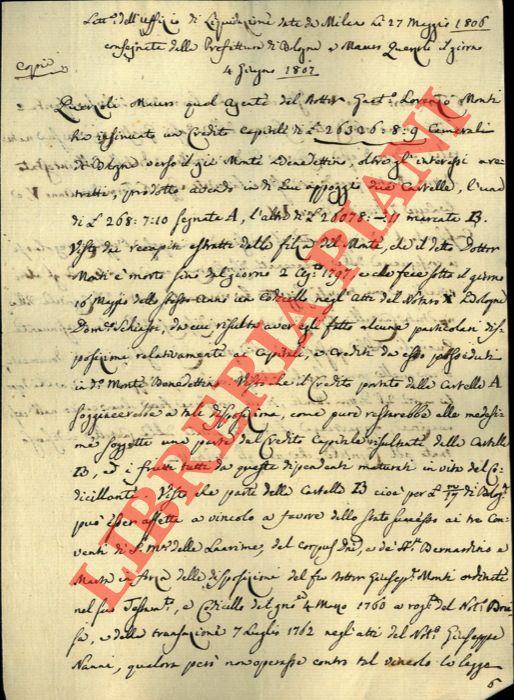 Lett.ª dell'Uffizio di Liquidazione data da Milano li 27 Maggio 1806
consegnata dalla Prefettura di Bologna a Mauro Quercioli il giorno
Copia
4 Giugno 1807
Mauro qual Agente del Dottor Gaet.º Lorenzo Monti
ha insinuato un Credito Capitale di £ 26326:8:9 Camerali
di Bologna verso il già Monte Benedettino, oltre gl'interessi arre-
trati, prodotte avendo in di Lui appoggio due Cartelle, l'una
di £ 268:7:10 segnata A, l'altra di £ 26078:-:11 marcata B.
Visto dai recapiti estratti dalla filza del Monte, che il detto Dottor
Monti è morto fino dal giorno 2 1797 e che fece sotto il giorno
16 Maggio dello stesso Anno un Codicillo negl'Atti del Notaro di Bologna
Dom.co Schiassi, da cui risulta aver egli fatto alcune particolari dis-
posizioni relativamente ai Capitali, e Crediti da esso posseduti
in d.º Monte Benedettino. Visto che il Credito portato dalla Cartella A
soggiacerebbe a tale disposizione, come pure resterebbe alle medesi-
me soggetta una parte del Credito Capitale risultante dalla Cartella
B, ed i frutti tutti da queste dipendenti maturati in vita del Co-
dicillante. Visto che parte della Cartella B cioè per £ di Bologª
può esser affetta a vincolo a favore dello stato successo ai tre Con-
venti di S. Mª delle Lacrime, del Corpus Dni, e de' SS.ti Bernardino e
Marta in forza delle disposizioni del fu Dottor Giusep.e Monti ordinate
nel suo Testam.to, e Codicillo del gno 4 Marzo 1760 a rog.to del Not.º
e della transazione 7 Luglio 1762 negl'atti del Not.º Giuseppe
Nanni, qualora però non operasse contro tal vincolo la legge
6
LIBRERIA PIANI